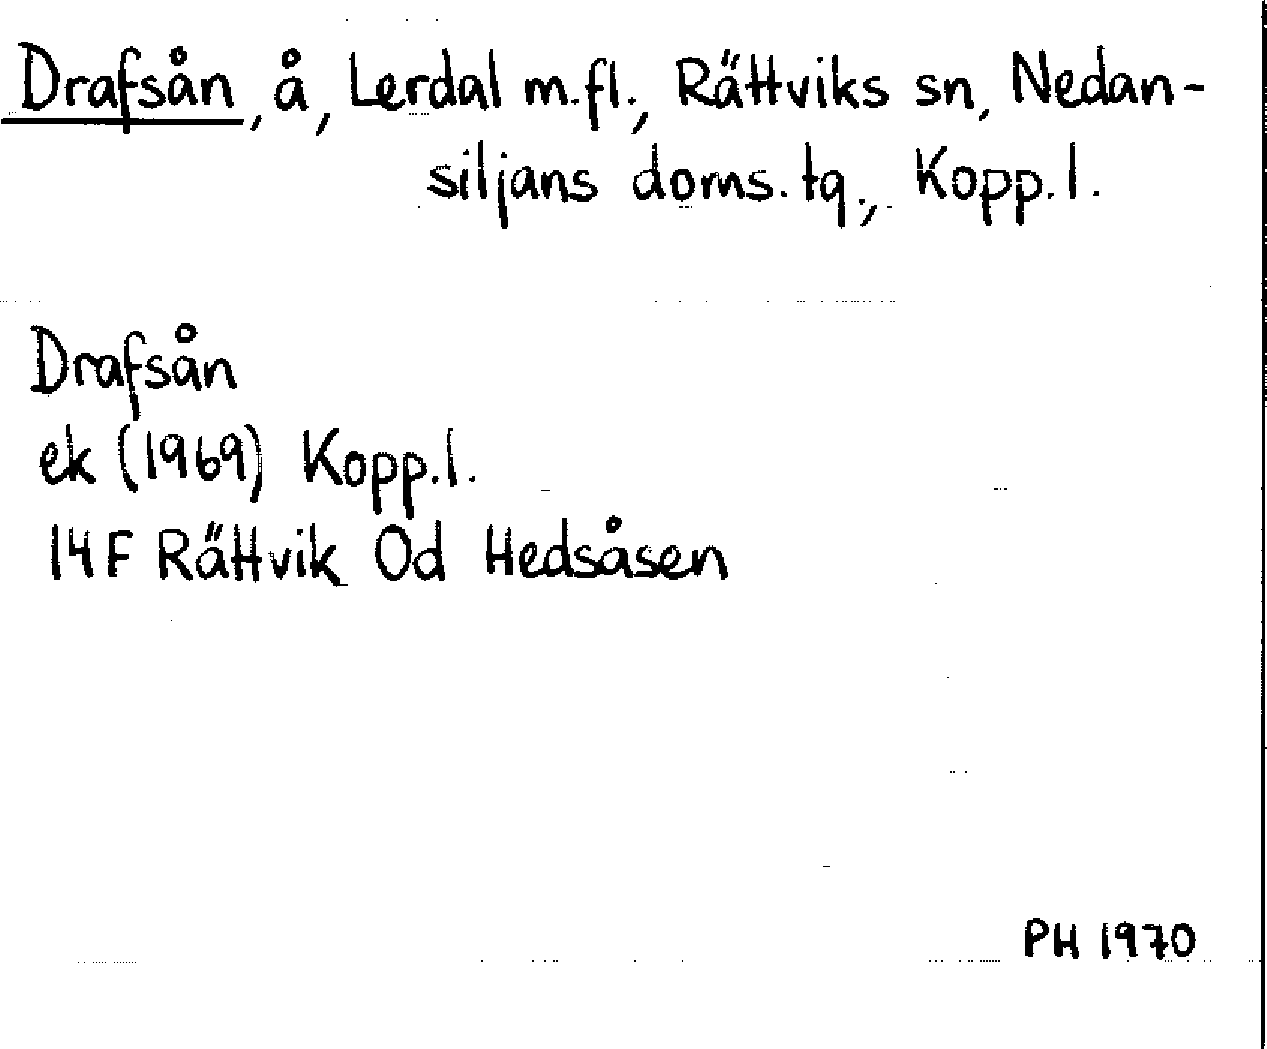 Drafsån, å, Lerdal m.fl., Rättviks sn, Nedan-
siljans doms. tg., Kopp. l.
Drafsån
ek (1969) Kopp. l.
14F Rättvik 0d Hedsåsen
PH 1970